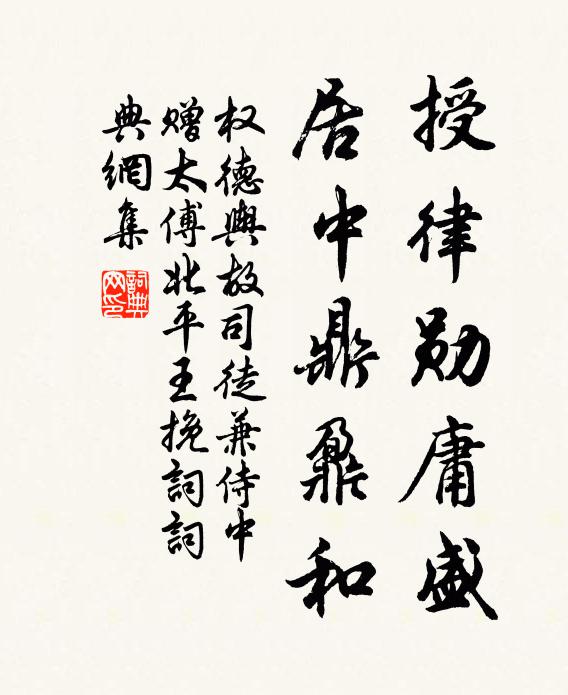 授律勋庸盛
居中鼎鼐和
权德舆故司徒兼侍中
赠太傅北平王挽詞詞
典網集
詞典網印